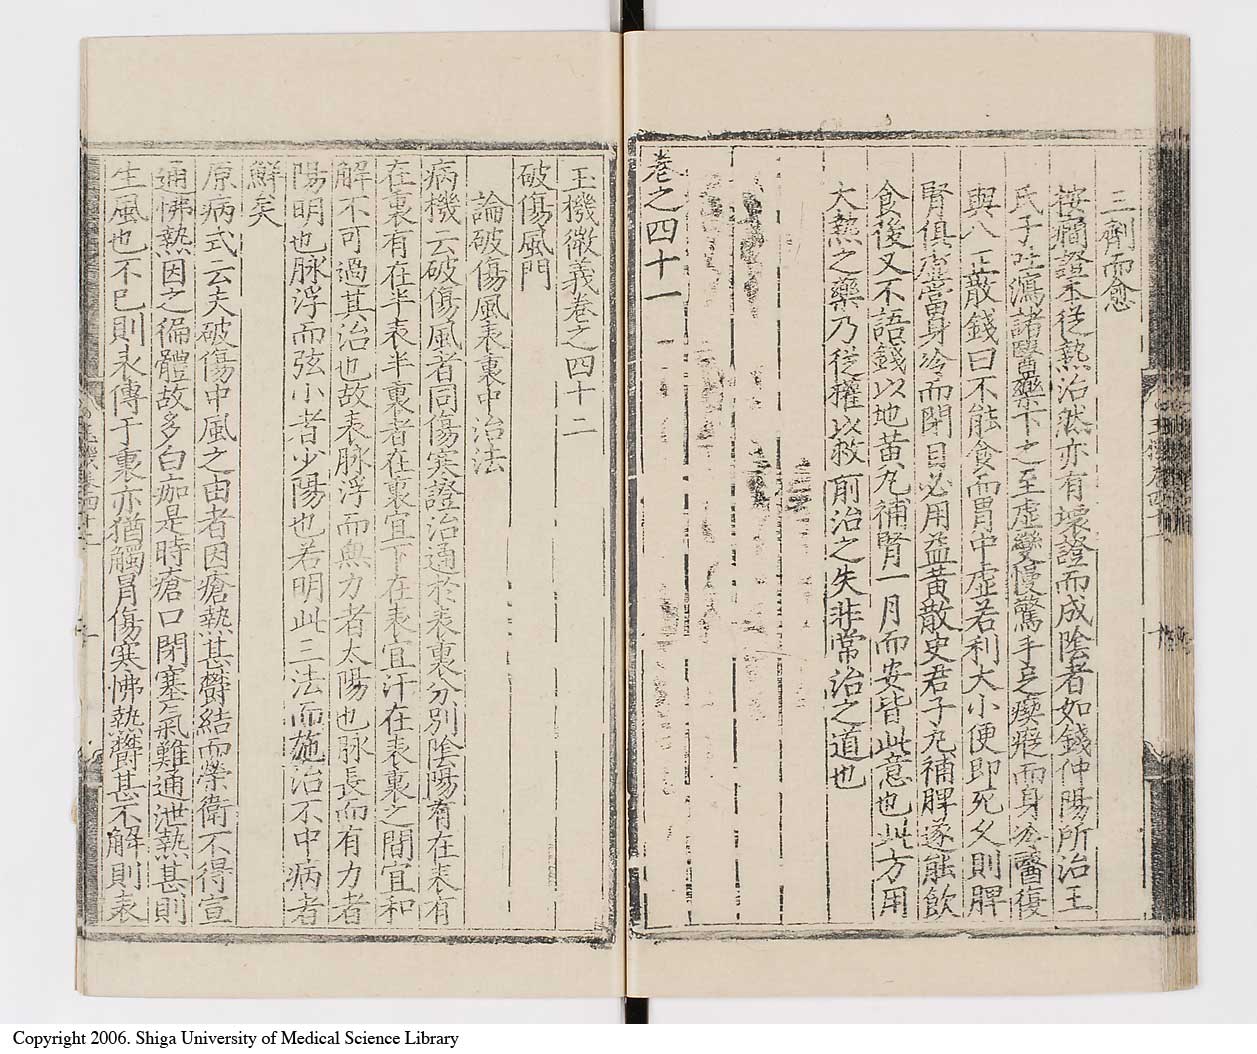 三劑而愈
按癎證本從熱治然亦有壞證而成陰者如錢仲陽所治王
氏子吐瀉諸醫藥下之至虛變慢驚手足瘈瘲而身冷醫復
與八正散錢曰不能食而胃中虛若利大小便即死久則脾
腎俱虛當身冷而閉目必用益黃散史君子丸補脾遂能飲
食後又不語錢以地黃丸補腎一月而安皆此意也此方用
大熱之藥乃從權以救前治之失非常治之道也
卷之四十一
玉機微義卷之四十二
破傷風門
論破傷風表裏中治法
病機云破傷風者同傷寒證治通於表裏分別陰陽有在表有
在裏有在半表半裏者在裏宜下在表宜汗在表裏之間宜和
解不可過其治也故表脉浮而無力者太陽也脉長而有力者
陽明也脉浮而弦小者少陽也若明此三法而施治不中病者
鮮矣
原病式云夫破傷中風之由者因瘡熱甚欝結而榮衛不得宣
通怫熱因之徧體故多白痂是時瘡口閉塞氣難通泄熱甚則
生風也不已則表傳于裏亦猶觸冒傷寒怫熱欝甚不解則表
Copyright 2006. Shiga University of Medical Science Library